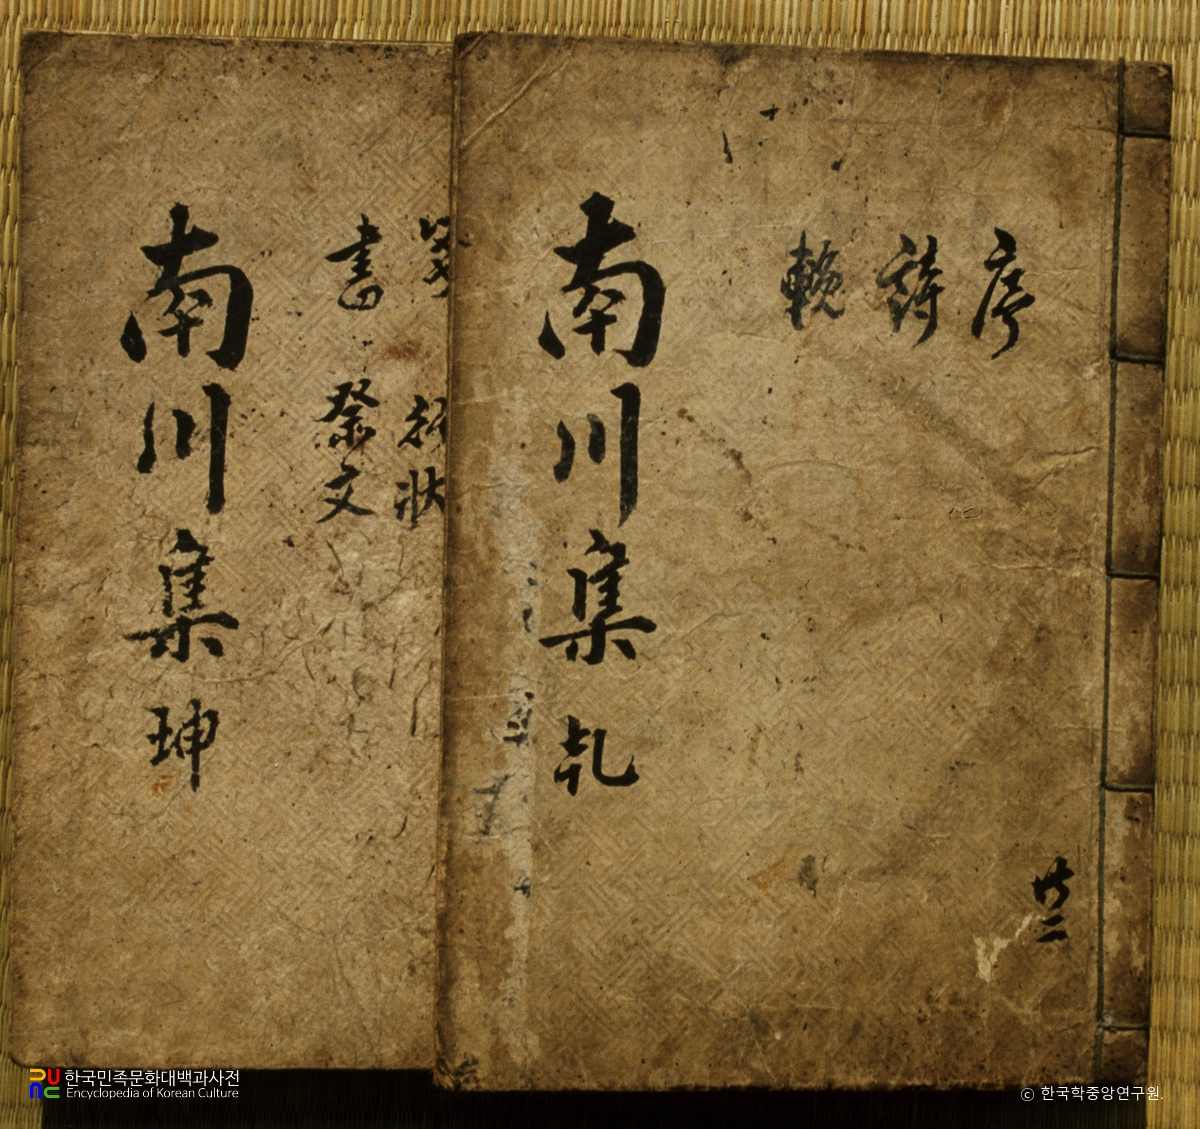 序
詩
輓
南川集 乾
共二
狀
書 祭文
南川集 坤
한국민족문화대백과사전
Encyclopedia of Korean Culture
ⓒ 한국학중앙연구원.